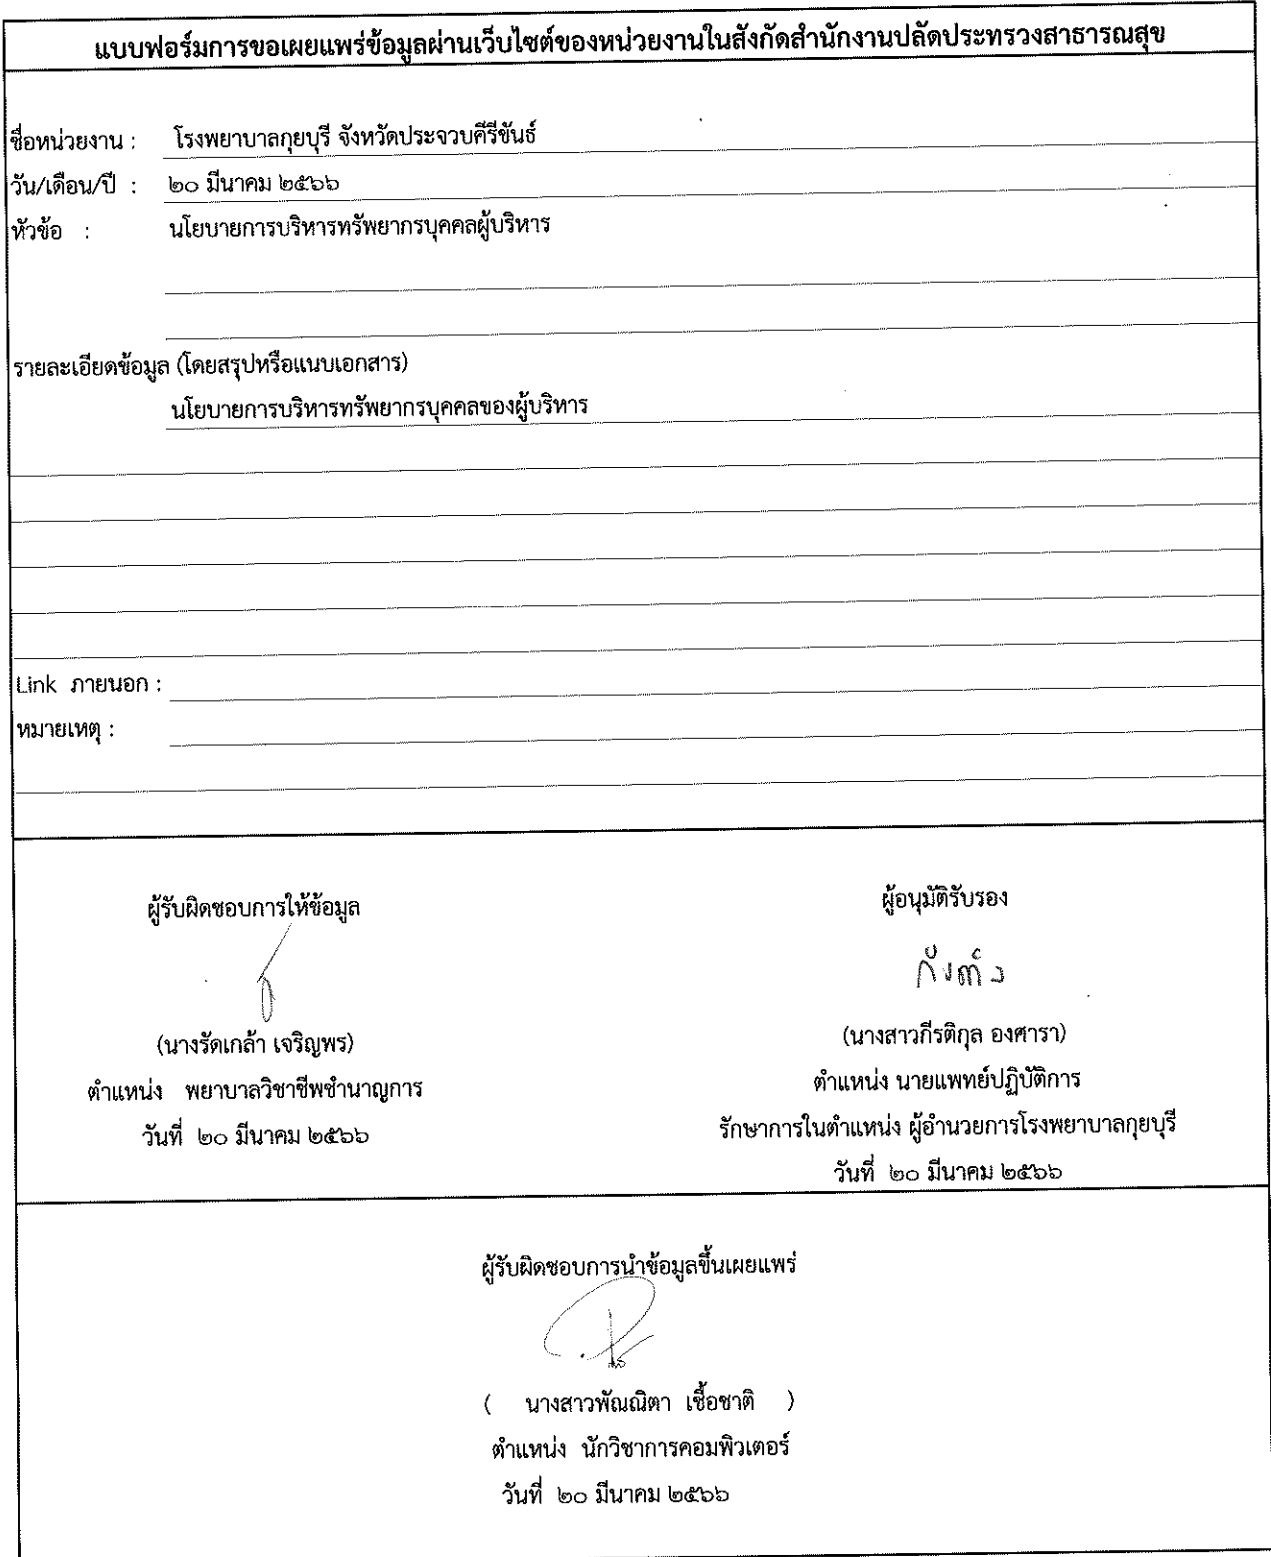 แบบฟอร์มการขอเผยแพร่ข้อมูลผ่านเว็บไซต์ของหน่วยงานในสังกัดสำนักงานปลัดประทรวงสาธารณสุข
ชื่อหน่วยงาน : โรงพยาบาลกุยบุรี จังหวัดประจวบคีรีขันธ์
วัน/เดือน/ปี : ๒๐ มีนาคม ๒๕๖๖
หัวข้อ : นโยบายการบริหารทรัพยากรบุคคลผู้บริหาร
รายละเอียดข้อมูล (โดยสรุปหรือแนบเอกสาร)
นโยบายการบริหารทรัพยากรบุคคลของผู้บริหาร
Link ภายนอก :
หมายเหตุ :
ผู้รับผิดชอบการให้ข้อมูล
(นางรัดเกล้า เจริญพร)
ตำแหน่ง พยาบาลวิชาชีพชำนาญการ
วันที่ ๒๐ มีนาคม ๒๕๖๖
ผู้อนุมัติรับรอง
(นางสาวกีรติกุล องศารา)
ตำแหน่ง นายแพทย์ปฏิบัติการ
รักษาการในตำแหน่ง ผู้อำนวยการโรงพยาบาลกุยบุรี
วันที่ ๒๐ มีนาคม ๒๕๖๖
ผู้รับผิดชอบการนำข้อมูลขึ้นเผยแพร่
( นางสาวพัณณิตา เชื้อชาติ )
ตำแหน่ง นักวิชาการคอมพิวเตอร์
วันที่ ๒๐ มีนาคม ๒๕๖๖